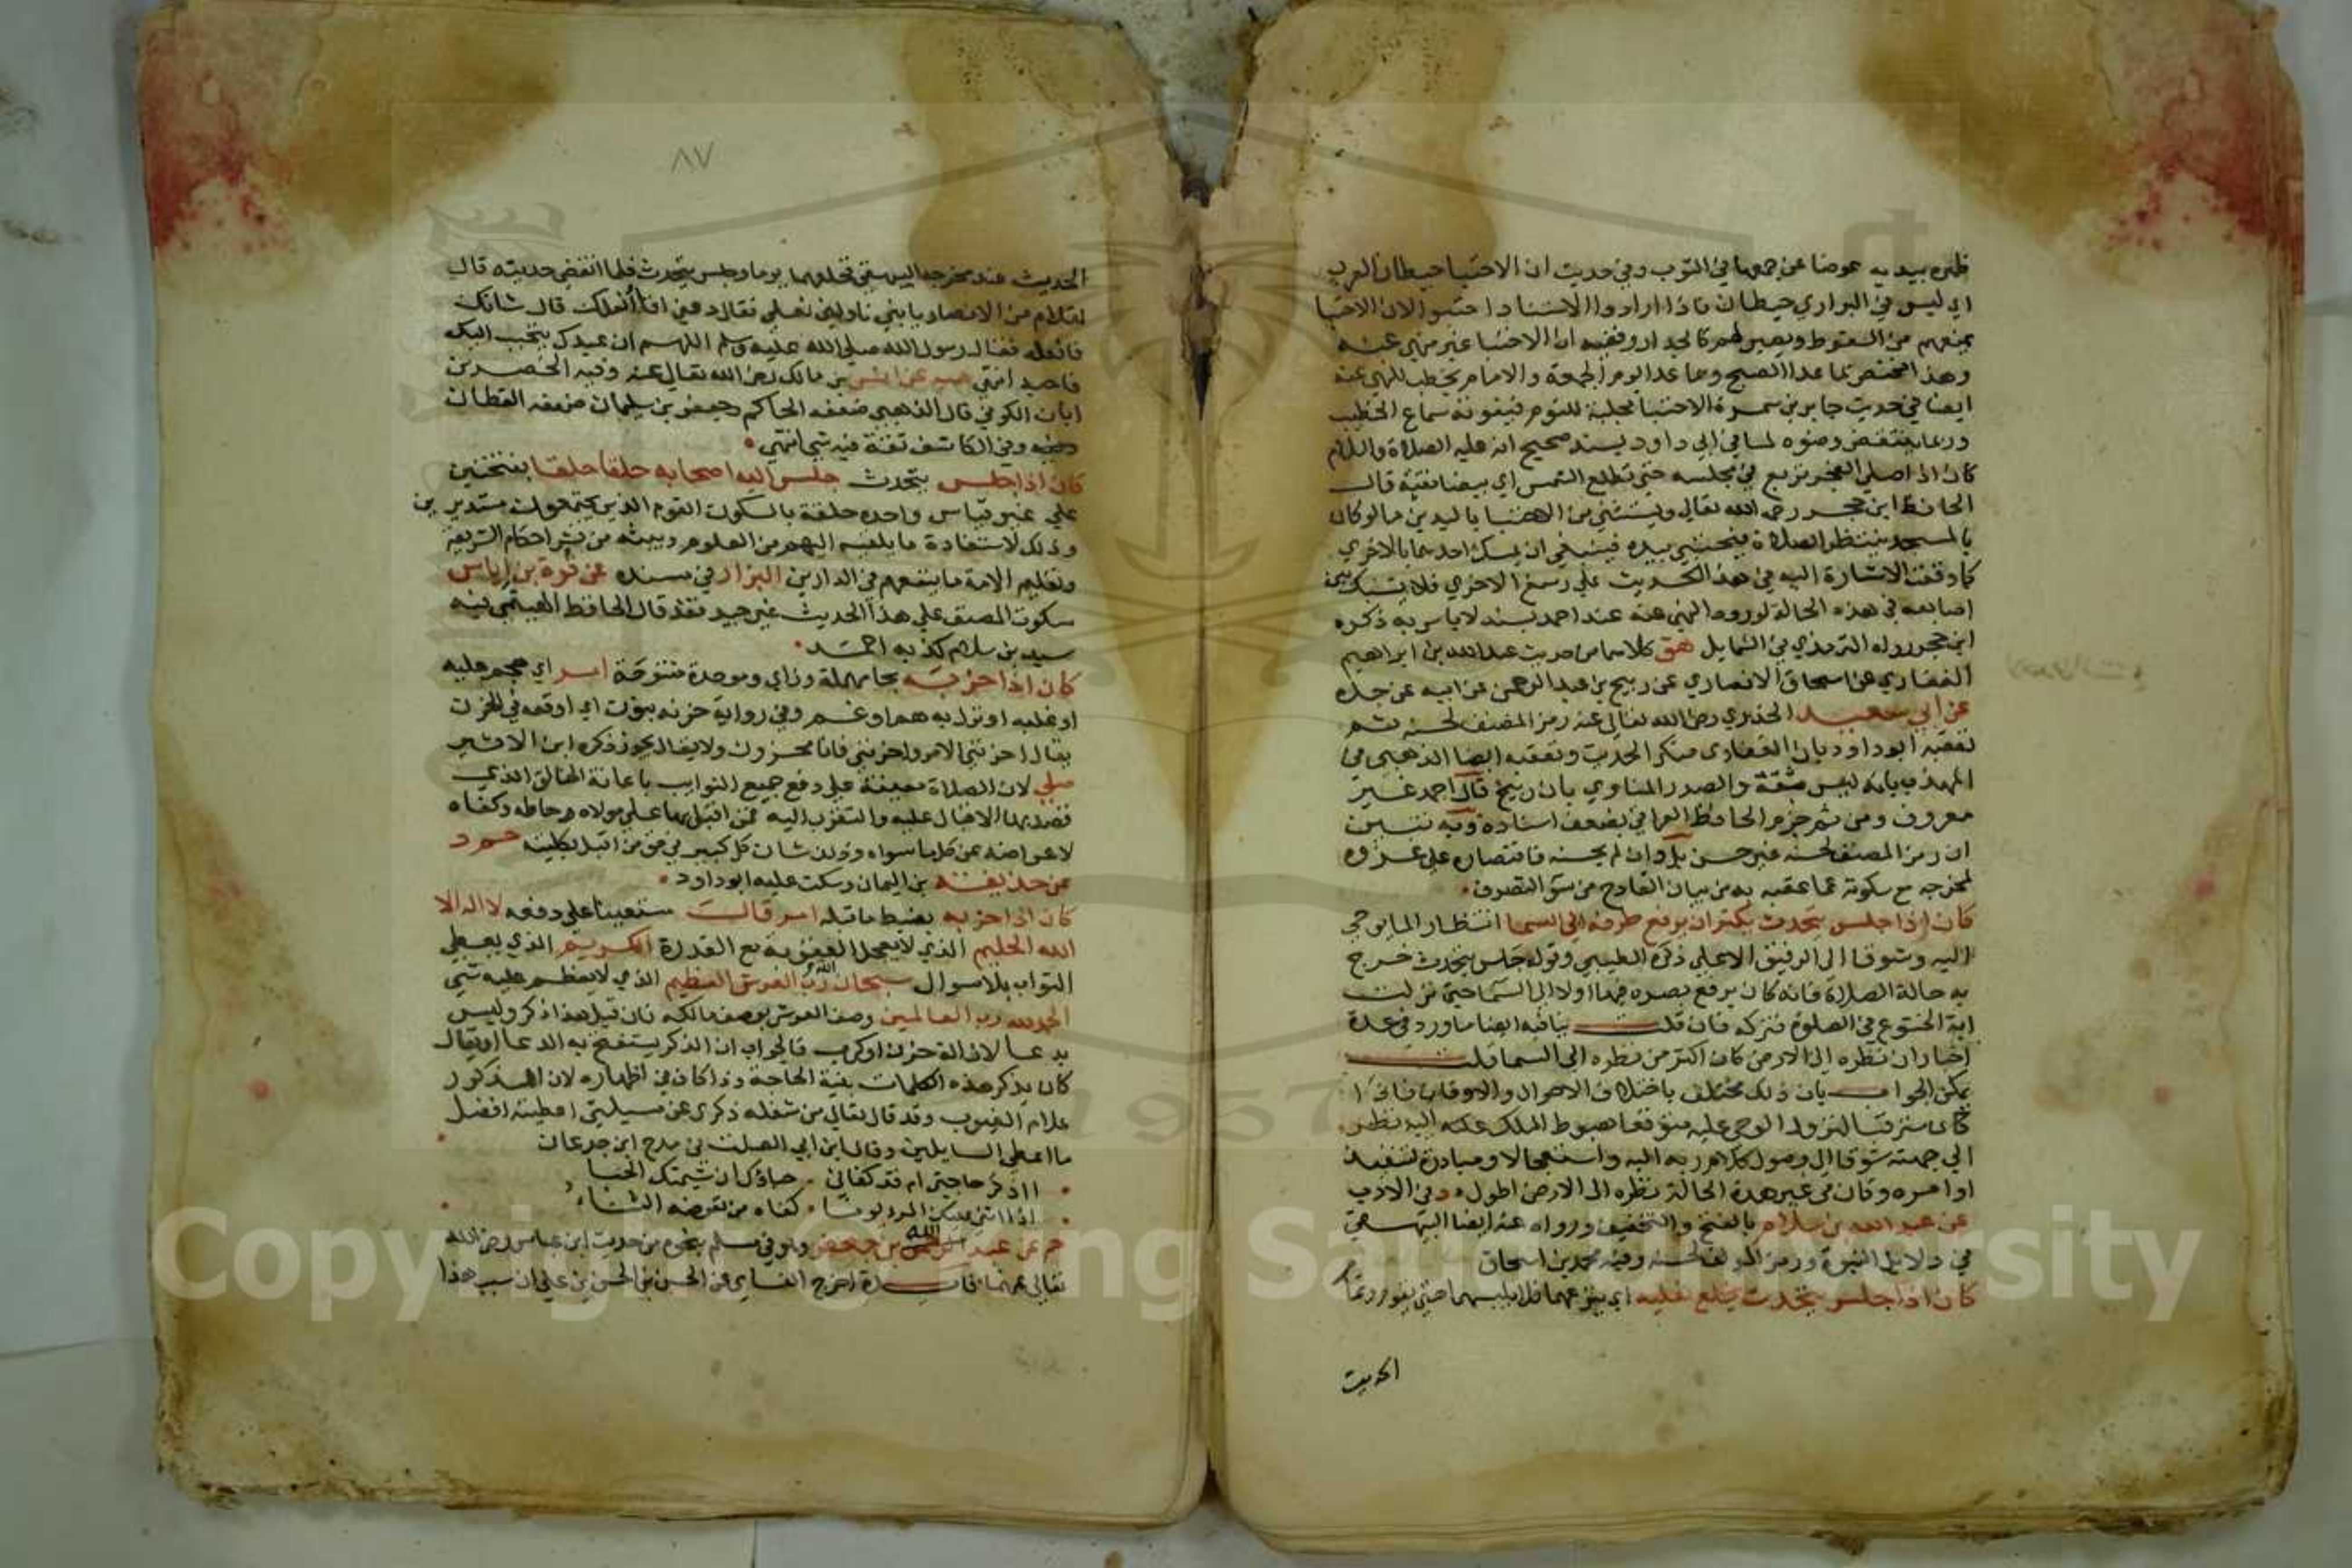 ظهره بيديه عوضا عن جمعها في الثوب وفي حديث ان الاحتبا حيطان العرب
اي ليس في البراري حيطان فاذا ارادوا الاستنادا احتبوا لان الاحتبا
يمنعهم من السقوط ويصير لهم كالجدار وفيه ان الاحتبا غير منهي عنه
وهذا مخصص بما عدا الصبح وما عدا يوم الجمعة والامام يخطب للنهي عنه
ايضا في حديث جابر بن سمرة الاحتبا مجلبة للنوم فيفوته سماع الخطيب
وربما ينتقض وضوه لما في ابي داود بسند صحيح انه عليه الصلاة والسلام
كان اذا صلى الفجر تربع في مجلسه حتى تطلع الشمس اي بيضا نقية قال
الحافظ ابن حجر رحمه الله تعالى ويستثني من الاحتبا باليدين ما لو كان
بالمسجد ينتظر الصلاة فيحتبي بيده فينبغي ان يمسك احدهما بالاخري
كما وقعت الاشارة اليه في هذا الحديث علي رسغ الاخري فلا يشبك بين
اصابعه في هذه الحالة لورود النهي عنه عند احمد بسند لا باس به ذكره
ابن حجر رواه الترمذي في الشمايل هق كلاهما من حديث عبد الله بن ابراهيم
الغفاري عن اسحاق الانصاري عن ربيح بن عبد الرحمن عن ابيه عن جده
عن ابي سعيد الخدري رضي الله تعالى عنه رمز المصنف لحسنه ثم
تعقبه ابو داود بان الغفاري منكر الحديث وتعقبه ايضا الذهبي في
المهذب بانه ليس بثقة والصدر المناوي بان ربيح قال احمد غير
معروف ومن ثم جزم الحافظ العراقي بضعف اسناده وبه تبين
ان رمز المصنف لحسنه غير حسن بل وان لم يحسنه فاقتصاره على عزوه
لمخرجه مع سكوته عما عقبه به من بيان القادح من سو التصرف
كان اذا جلس يتحدث يكثر ان يرفع طرفه الى السما انتظارا لما يوحي
اليه وشوقا الي الرفيق الاعلي ذكره الطيبي وقوله جلس يتحدث خرج
به حالة الصلاة فانه كان يرفع بصره فيها اولا الى السما حتي نزلت
اية الخشوع في الصلوة فتركه فان قلت ينافيه ايضا ما ورد في عدة
اخبار ان نظره الى الارض كان اكثر من نظره الي السما قلت
يمكن الجواب بان ذلك مختلف باختلاف الاحوال والاوقات
مترقبا لنزول الوحي عليه متوقعا هبوط الملك عليه اليه نظر
الي جهته شوقا الى وصول كلام ربه اليه واستعجالا ومبادرة لتنفيذ
اوامره وكان في غير هذه الحالة نظره الى الارض اطول د في الادب
عن عبد الله بن سلام بالفتح والتخفيف ورواه عنه ايضا البيهقي
في دلايل النبوة ورمز المولف لحسنه وفيه محمد بن اسحاق
كان اذا جلس يتحدث يخلع نعليه اي ينزعهما فلا يلبسهما حتى يقوم وتمام
الحديث
٨٧
الحديث عند مخرجه البيهقي فخلعهما يوما وجلس يتحدث فلما انقضى حديثه قال
لغلام من الانصار يا بني ناولني نعلي فقال دعني انا أنعلك قال شانك
فافعله فقال رسول الله صلى الله عليه وسلم اللهم ان عبدك يتحبب اليك
فاحبه انتهي هب عن انس بن مالك رضي الله تعالى عنه وفيه الخضر بن
ابان الكوفي قال الذهبي ضعفه الحاكم وجعفر بن سليمان ضعفه القطان
وفي الكاشف ثقة فيه شي انتهي
كان اذا جلس يتحدث جلس اليه اصحابه حلقا حلقا بفتحتين
علي غير قياس واحده حلقة بالسكون القوم الذين يجتمعون مستديرين
وذلك لاستفادة ما يلقيه اليهم من العلوم ويبثه من نشر احكام الشريعة
وتعليم الامة ما ينفعهم في الدارين البزار في مسنده عن قرة بن اياس
سكوت المصنف علي هذا الحديث غير جيد فقد قال الحافظ الهيثمي فيه
سعيد بن سلام كذبه احمد
كان اذا حزبه بحا مهملة وزاي وموحدة مفتوحة امر اي هجم عليه
او غلبه او نزل به هم او غم وفي رواية حزنه بنون اي اوقعه في الحزن
يقال احزنني الامر واحزنني فانا محزون ولا يقال محزن ذكره ابن الاثير
صلي لان الصلاة معينة على دفع جميع النوايب باعانة الخالق الذي
قصد بها الاقبال عليه والتقرب اليه فمن اقبل بها على مولاه حاطه وكفاه
لاعراضه عن كل ما سواه وذلك شان كل كبير في حق من اقبل بكليته حم د
عن حذيفة بن اليمان وسكت عليه ابو داود
كان اذا حزبه بضبط ما قبله امر قال مستعينا علي دفعه لا اله الا
الله الحليم الذي لا يعجل العقوبة مع القدرة الكريم الذي يعطي
النواب بلا سوال سبحان الله رب العرش العظيم الذي لا يعظم عليه شي
الحمد لله رب العالمين وصف العرش بوصف مالكه فان قيل هذا ذكر وليس
بدعا لازالة حزن او كرب فالجواب ان الذكر يستفتح به الدعا او يقال
كان يذكر هذه الكلمات بنية الحاجة وذا كاف في اظهاره لان المذكور
علام الغيوب وقد قال تعالى من شغله ذكري عن مسيلتي اعطيته افضل
ما اعطي السايلين وقال ابن ابي الصلت في مدح ابن جدعان
ااذكر حاجتي ام قد كفاني حياؤك ان شيمتك الحيا
اذا اثني عليك المرء يوما كفاه من تعرضه الثناء
حم عن عبد الله بن جعفر وهو في مسلم بنحوه من حديث ابن عباس رضي الله
تعالى عنهما فايدة اخرج النساي عن الحسن بن الحسن بن علي ان سبب هذا
Copyright © King Saud University
1957